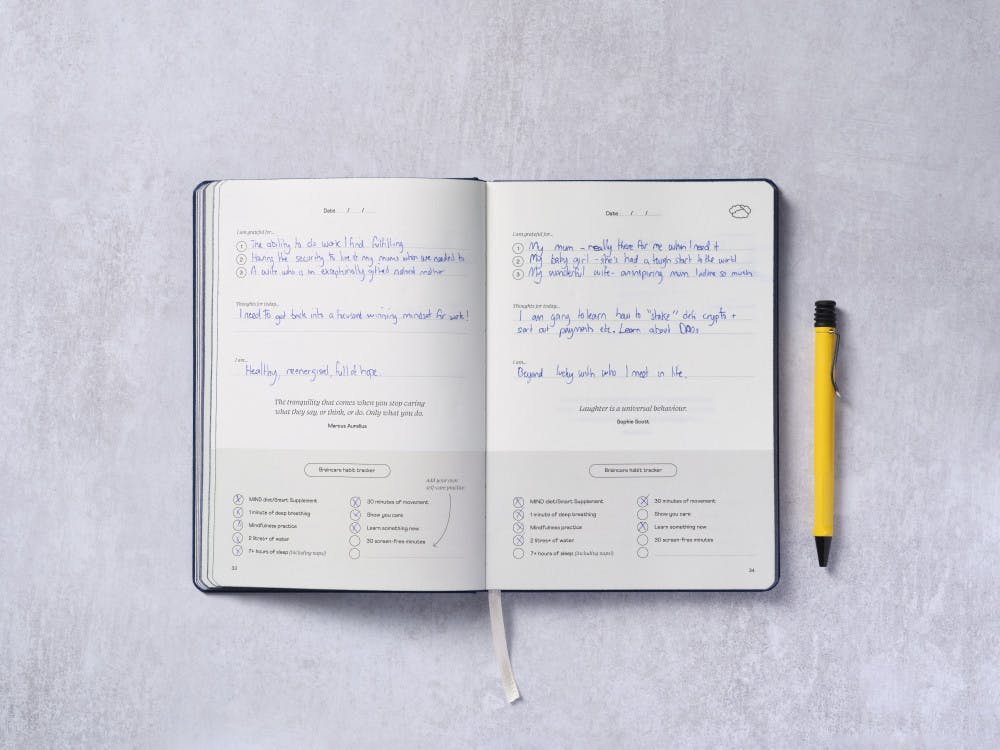 Date / /
I am grateful for...
1 The ability to do work I find fulfilling
2 Having the security to live at my mums when we needed to
3 A wife who is an exceptionally gifted natural mother
Thoughts for today...
I need to get back into a focused winning mindset for work!
I am...
Healthy, reenergised, full of hope.
The tranquility that comes when you stop caring
what they say, or think, or do. Only what you do.
Marcus Aurelius
Braincare habit tracker
add your own
self-care practice
MIND diet/Smart Supplement
1 minute of deep breathing
Mindfulness practice
2 litres+ of water
7+ hours of sleep (including naps!)
30 minutes of movement
Show you care
Learn something new
30 screen-free minutes
33
Date / /
I am grateful for...
1 My mum - really there for me when I need it
2 My baby girl - she's had a tough start to the world
3 My wonderful wife - an inspiring mum I adore so much
Thoughts for today...
I am going to learn how to "stake" crypto +
sort out payments etc. Learn about DAOs
I am...
Beyond lucky with who I meet in life.
Laughter is a universal behaviour.
Sophie Scott
Braincare habit tracker
MIND diet/Smart Supplement
1 minute of deep breathing
Mindfulness practice
2 litres+ of water
7+ hours of sleep (including naps!)
30 minutes of movement
Show you care
Learn something new
30 screen-free minutes
34